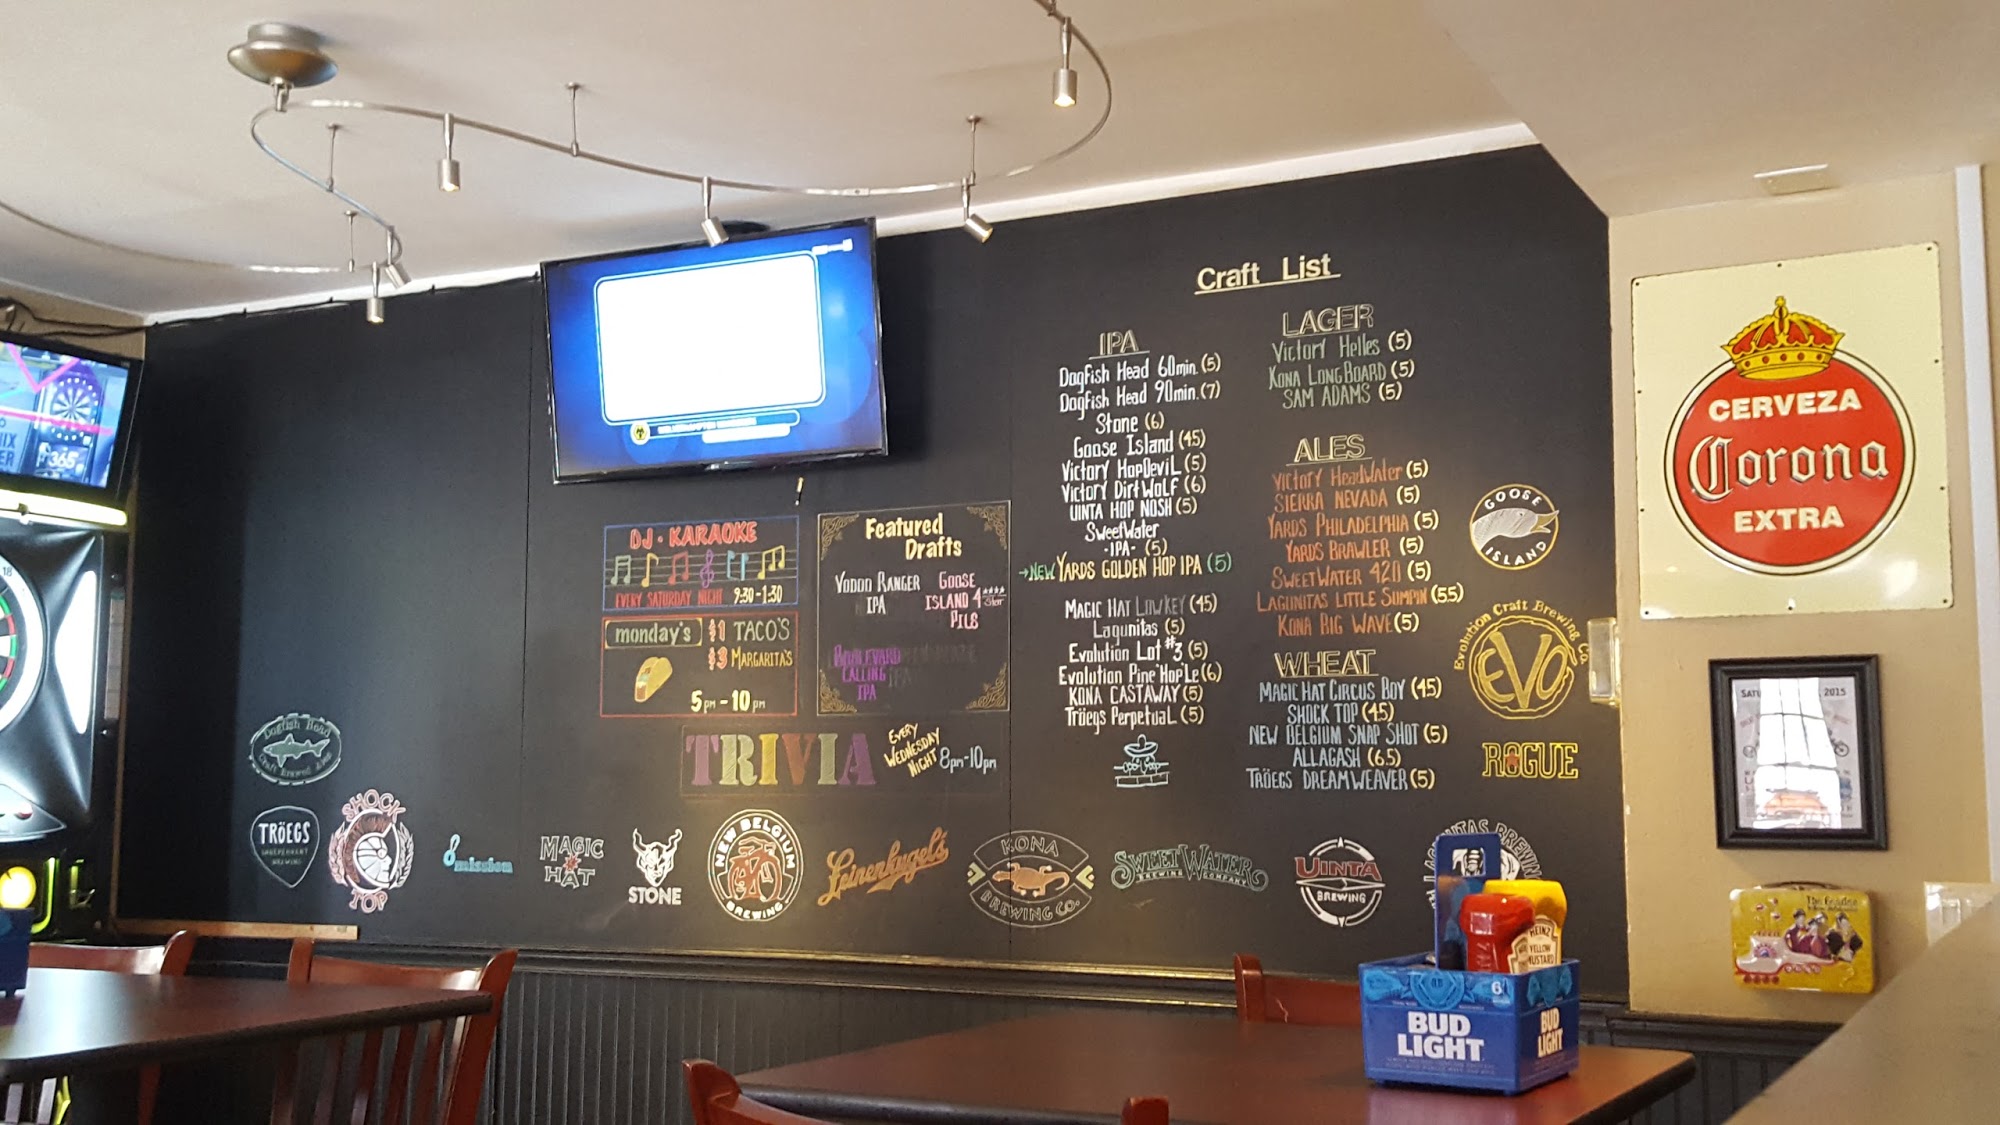 Craft List
IPA
Dogfish Head 60min. (5)
Dogfish Head 90min. (7)
Stone (6)
Goose Island (4.5)
Victory HopDeviL (5)
Victory DirtWolf (6)
UINTA HOP NOSH (5)
SweetWater
-IPA- (5)
→NEW YARDS GOLDEN HOP IPA (5)
MAGIC HAT LOWKEY (4.5)
Lagunitas (5)
Evolution Lot #3 (5)
Evolution Pine'Hop'Le (6)
KONA CASTAWAY (5)
Tröegs Perpetual (5)
LAGER
Victory Helles (5)
KONA LONGBOARD (5)
SAM ADAMS (5)
ALES
Victory HeadWater (5)
SIERRA NEVADA (5)
YARDS PHILADELPHIA (5)
YARDS BRAWLER (5)
SWEETWATER 420 (5)
LAGUNITAS LITTLE SUMPIN (5.5)
KONA BIG WAVE (5)
WHEAT
MAGIC HAT CIRCUS BOY (4.5)
SHOCK TOP (4.5)
NEW BELGIUM SNAP SHOT (5)
ALLAGASH (6.5)
TRÖEGS DREAMWEAVER (5)
DJ • KARAOKE
EVERY SATURDAY NIGHT 9:30-1:30
monday's $1 TACO'S
$3 MARGARITA'S
5pm - 10pm
Featured
Drafts
VOODOO RANGER
IPA
GOOSE
ISLAND 4 Star
PILS
BOULEVARD
CALLING
IPA
TRIVIA
EVERY
WEDNESDAY
NIGHT
8pm-10pm
Dogfish Head
Craft Brewed Ales
TRÖEGS
INDEPENDENT
BREWING
SHOCK
TOP
Omission
MAGIC
HAT
STONE
NEW BELGIUM
BREWING
Leinenkugel's
KONA
BREWING CO.
SWEETWATER
BREWING COMPANY
UINTA
BREWING
LAGUNITAS BREWING
GOOSE
ISLAND
Evolution Craft Brewing Co.
EVO
ROGUE
CERVEZA
Corona
EXTRA
2015
HEINZ
YELLOW
MUSTARD
6
BUD
LIGHT
BUD
LIGHT
365
18